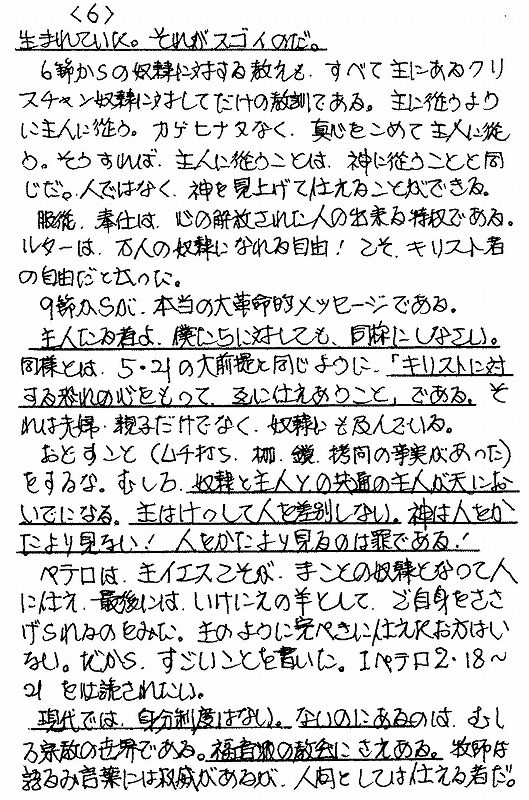 <6>
生まれていた。それがスゴイのだ。
6節からの奴隷に対する教えも、すべて主にあるクリ
スチャン奴隷に対してだけの教訓である。主に従うよう
に主人に従う。カゲヒナタなく、真心をこめて主人に従
う。そうすれば、主人に従うことは、神に従うことと同
じだ。人ではなく、神を見上げて仕えることができる。
服従、奉仕は、心の解放された人の出来る特权である。
ルターは、万人の奴隷になれる自由!こそ、キリスト者
の自由だと云った。
9節からが、本当の大革命的メッセージである。
主人たる者よ、僕たちに対しても、同様にしなさい。
同様とは、5・21の大前提と同じように、「キリストに対
する恐れの心をもって、互に仕えあうこと」である。そ
れは夫婦・親子だけでなく、奴隷にも及んでいる。
おどすこと(ムチ打ち、枷、鎖、拷問の事実があった)
をするな。むしろ、奴隷と主人との共通の主人が天にお
いでになる。主はけっして人を差別しない。神は人をか
たより見ない!人をかたより見るのは罪である!
ペテロは、主イエスこそが、まことの奴隷となって人
に仕え、最後には、いけにえの羊として、ご自身をささ
げられるのをみた。主のように完ぺきに仕えたお方はい
ない。だから、すごいことを書いた。Iペテロ2・18～
21をは読されたい。
現代では、身分制度はない。ないのにあるのは、むし
ろ宗教の世界である。福音派の教会にさえある。牧師は
語るみ言葉には权威があるが、人间としては仕える者だ。